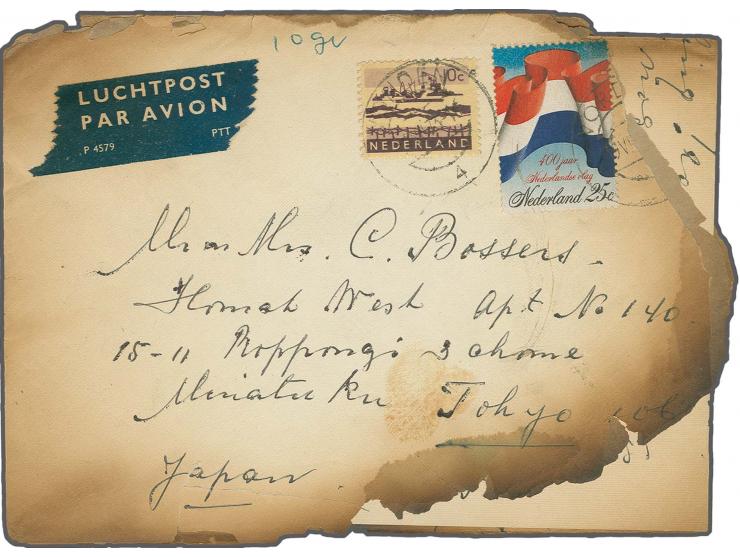 10 gr
LUCHTPOST
PAR AVION
P 4579
PTT
10c
NEDERLAND
400 jaar
Nederlandse vlag
Nederland 25c
4
Mr en Mrs. C. Bossers.
Homat West Apt No 140
15-11 Roppongi 3 chome
Minatu Ku Tokyo 106
Japan